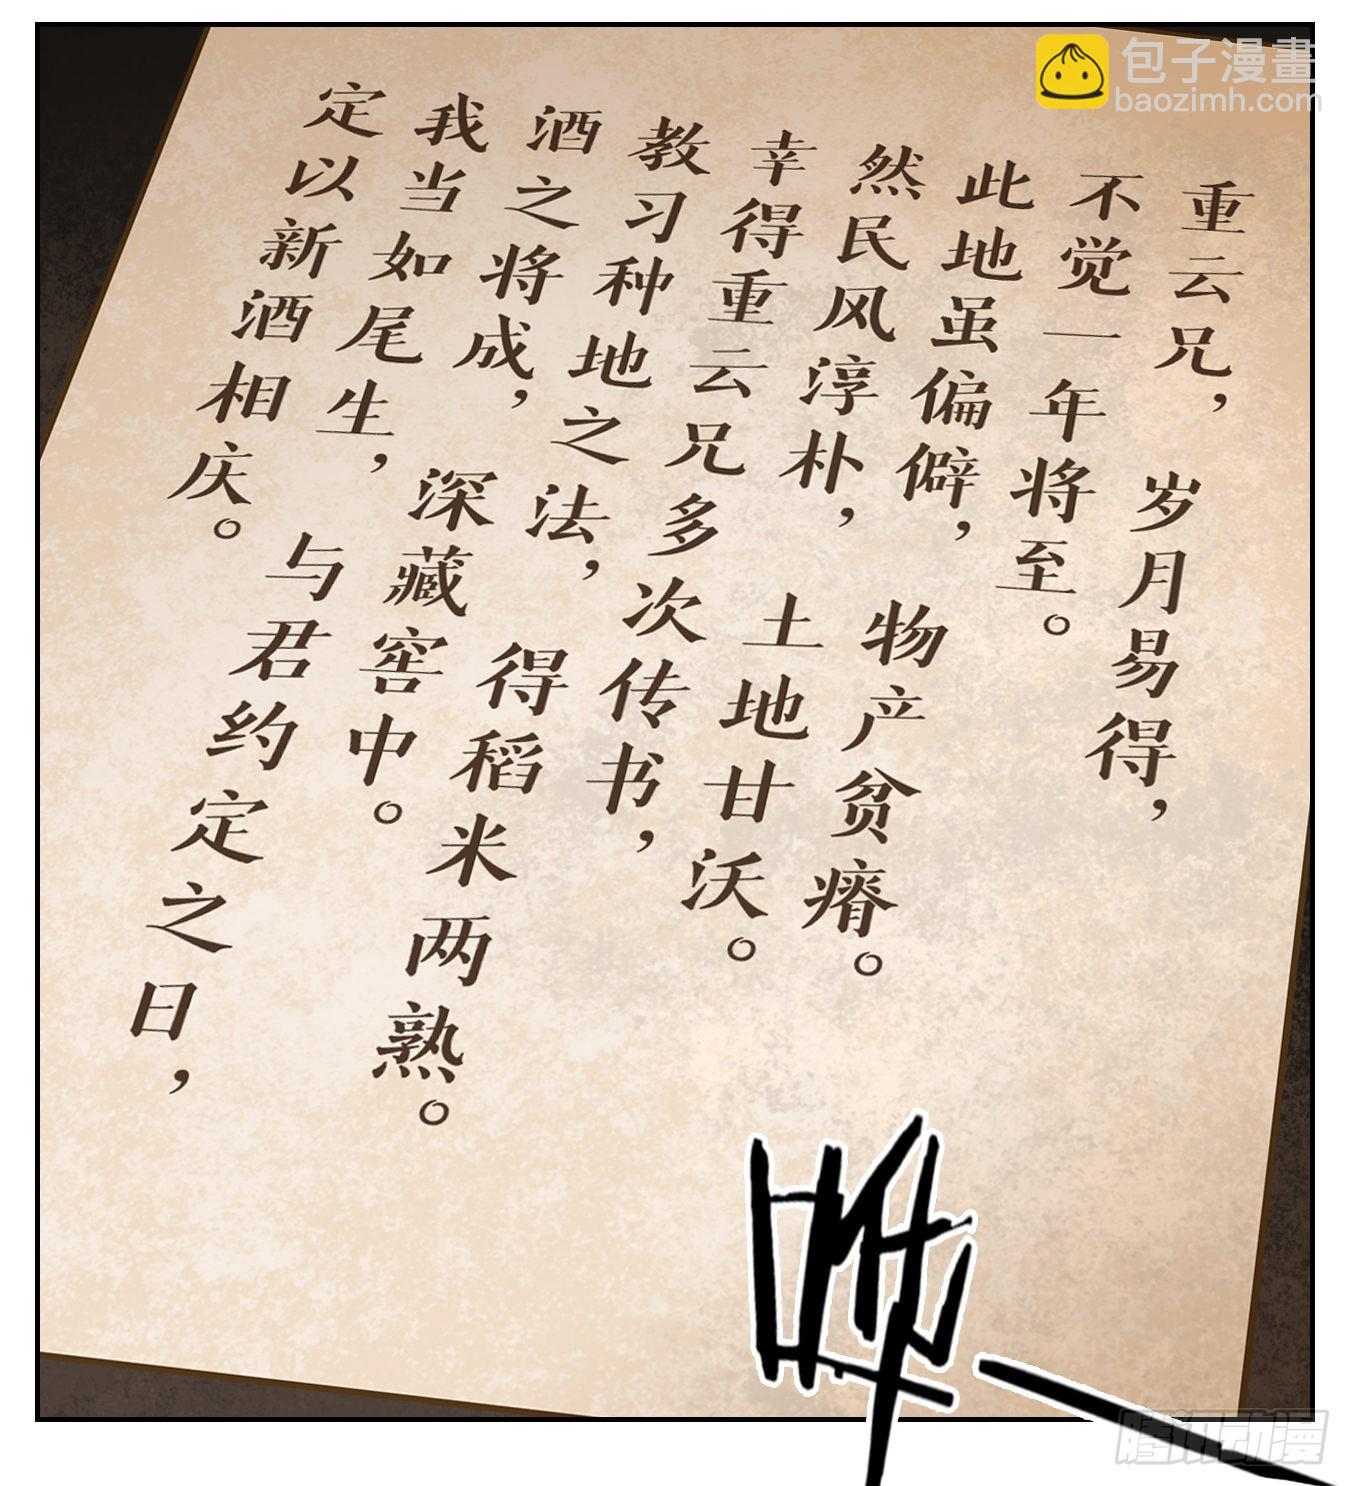 包子漫畫
baozimh.com
重云兄， 岁月易得，
不觉一年将至。
此地虽偏僻， 物产贫瘠。
然民风淳朴， 土地甘沃。
幸得重云兄多次传书，
教习种地之法， 得稻米两熟。
酒之将成， 深藏窖中。
我当如尾生， 与君约定之日，
定以新酒相庆。
咻
腾讯动漫